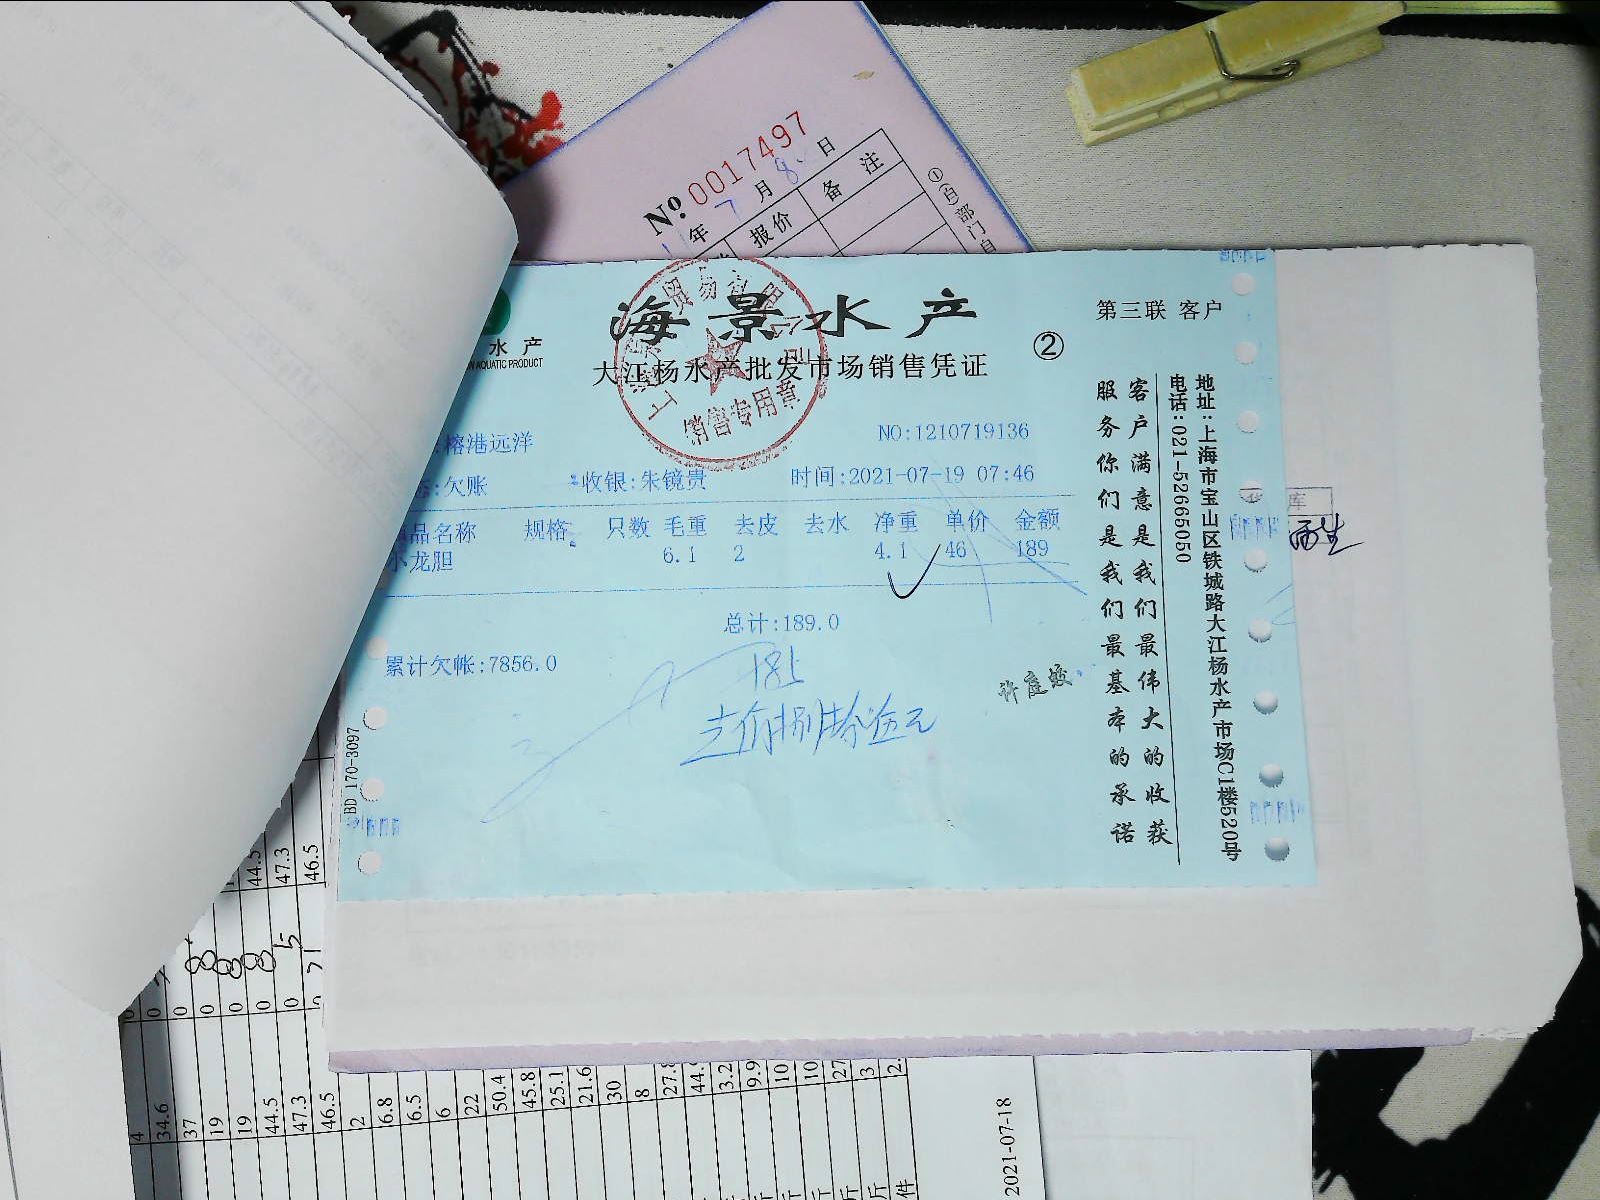 № 0017497
年 7 月 8 日
报价 备注
①(白)部门自
水产
AQUATIC PRODUCT
海景水产
大江杨水产批发市场销售凭证
②
第三联 客户
销售专用章
:榕港远洋
NO:1210719136
:欠账
收银:朱镜贵
时间:2021-07-19 07:46
品名称 规格 只数 毛重 去皮 去水 净重 单价 金额
小龙胆 6.1 2 4.1 46 189
总计:189.0
累计欠帐:7856.0
185
许庭蛟
客户满意是我们最伟大的收获
服务你们是我们最基本的承诺
地址:上海市宝山区铁城路大江杨水产市场C1楼520号
电话:021-52665050
BD 170-3097
库
44.5
47.3
46.5
0 0 0 0 0 0
4
34.6
37
19
19
44.5
47.3
46.5
2
6.8
6.5
6
22
50.4
45.8
25.1
21.6
30
8
27.8
3.2
9.9
10
10
27
3
斤
斤
斤
斤
件
2021-07-18